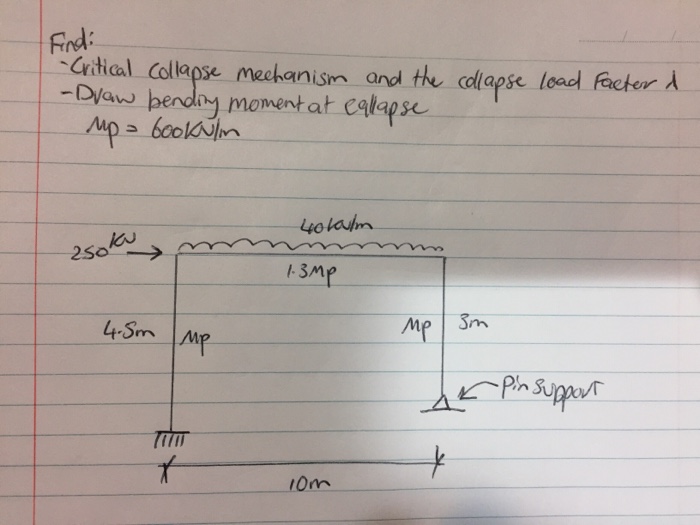 Find:
-Critical collapse mechanism and the collapse load Factor λ
-Draw bending moment at collapse
Mp = 600KN/m
40kN/m
250KN
1.3Mp
4.5m
Mp
Mp
3m
Pin support
10m